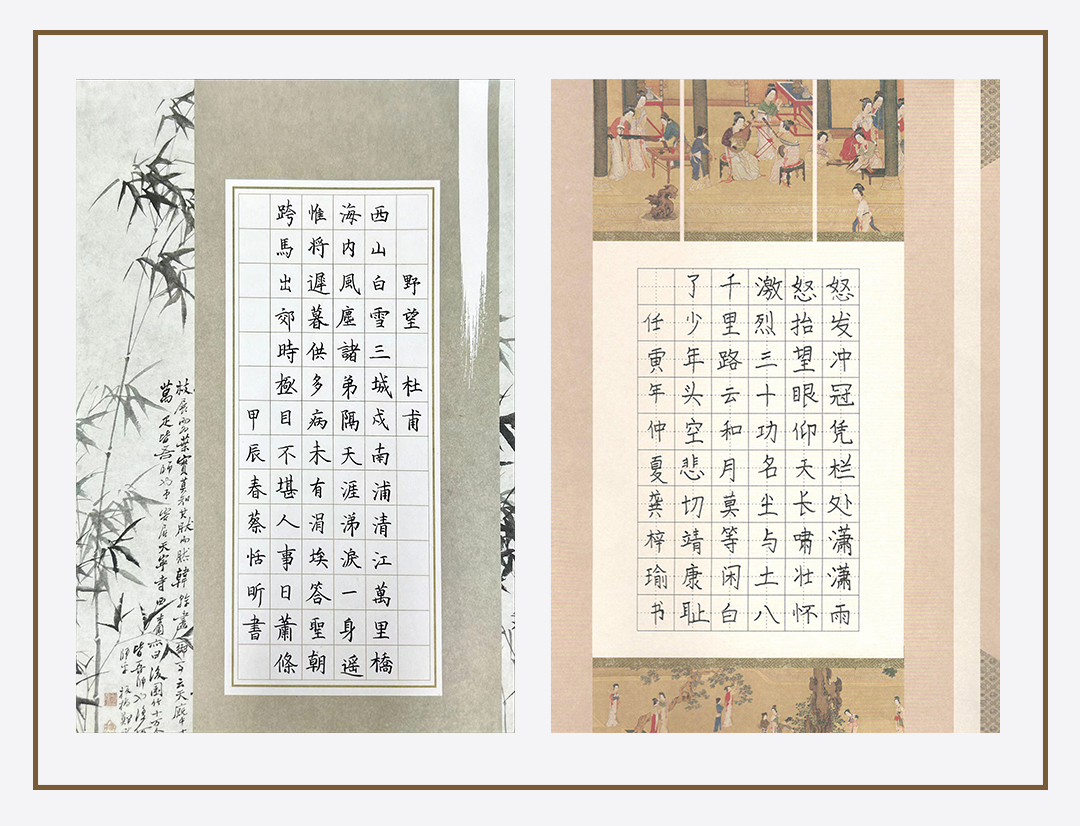 野望 杜甫
西山白雪三城戍南浦清江萬里橋
海内風塵諸弟隔天涯涕淚一身遥
惟将遲暮供多病未有涓埃答聖朝
跨馬出郊時極目不堪人事日蕭條
甲辰春蔡恬昕書
怒发冲冠凭栏处潇潇雨
怒抬望眼仰天长啸壮怀
激烈三十功名尘与土八
千里路云和月莫等闲白
了少年头空悲切靖康耻
任寅年仲夏龚梓瑜书